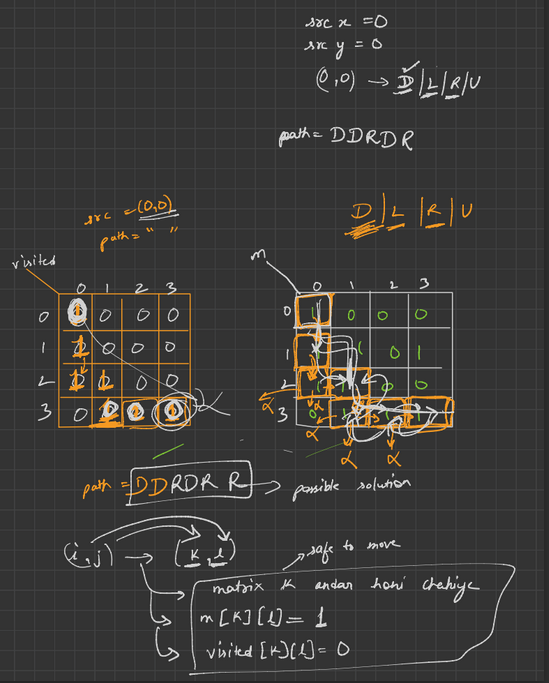 src x = 0
src y = 0
(0,0) → D|L|R|U
path = DDRDR
src = (0,0)
path = " "
D|L|R|U
visited
m
0 1 2 3
0 1 0 0 0
1 1 0 0 0
2 1 1 0 0
3 0 1 1 1
0 1 2 3
0 1 0 0 0
1 1 1 0 1
2 1 1 0 0
3 0 1 1 1
α
α
α
α
α
path = DDRDR R → possible solution
(i,j) → (k,l)
→ safe to move
matrix k andar honi chahiye
m[k][l] = 1
visited[k][l] = 0